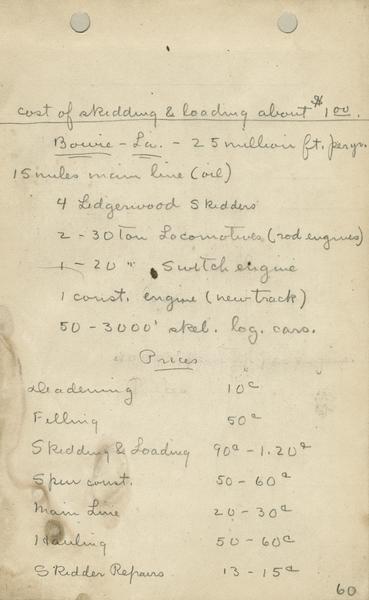 cost of skidding & loading about $1.00.
Bowie - La. - 25 million ft. per yr.
15 miles main line (oil)
4 Lidgerwood Skidders
2 - 30 Ton Locomotives (rod engines)
1 - 20 " Switch engine
1 const. engine (new track)
50 - 3000' skel. log. cars.
Prices
Deadening 10¢
Felling 50¢
Skidding & Loading 90¢ - 1.20¢
Spur const. 50 - 60¢
Main Line 20 - 30¢
Hauling 50 - 60¢
Skidder Repairs 13 - 15¢
60